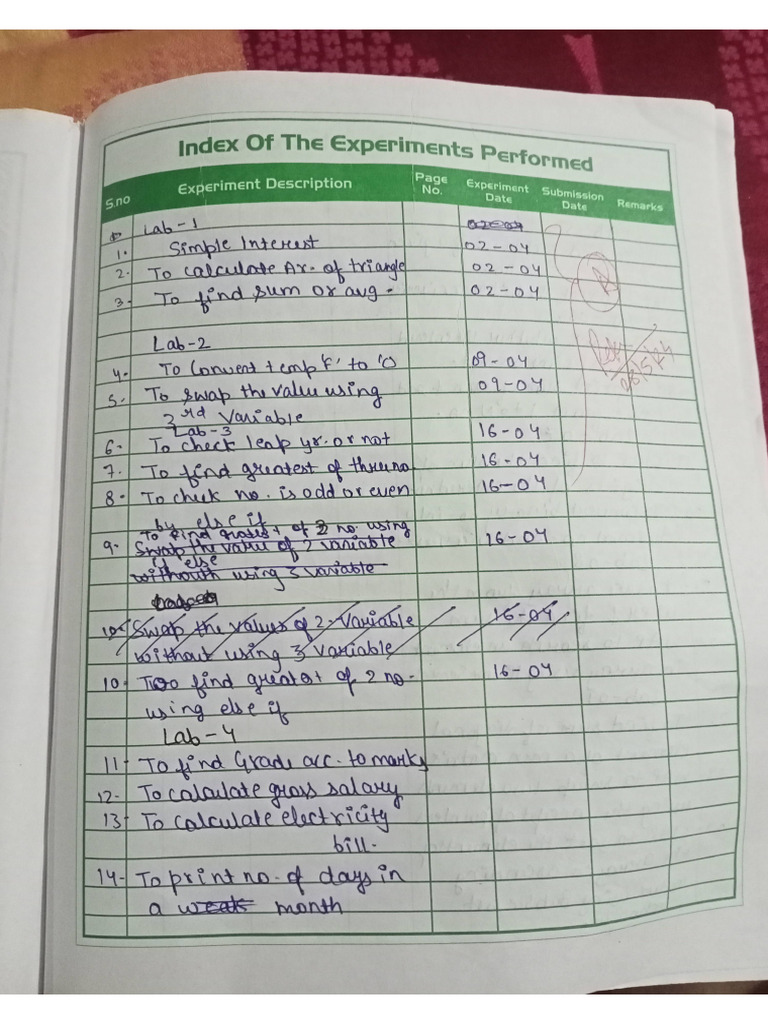 Index Of The Experiments Performed
S.no Experiment Description Page No. Experiment Date Submission Date Remarks
Lab-1
1. Simple Interest 02-04
2. To calculate Ar. of triangle 02-04
3. To find sum or avg. 02-04
Lab-2
4. To Convert temp 'F' to 'C' 09-04
5. To swap the value using 09-04
3rd Variable
Lab-3
6. To check leap yr. or not 16-04
7. To find greatest of three no 16-04
8. To check no. is odd or even 16-04
by else if
To find greatest of 2 no. using
9. Swap the value of 2 variable 16-04
if else
without using 3 variable
10. Swap the values of 2 Variable 16-04
without using 3 variable
10. To find greatest of 2 no. 16-04
using else if
Lab-4
11- To find Grade acc. to marks
12- To calculate gross salary
13- To calculate electricity
bill.
14- To print no. of days in
a week month